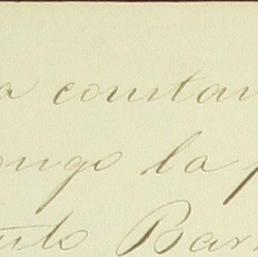 a constan
ongo la p
tulo Bar